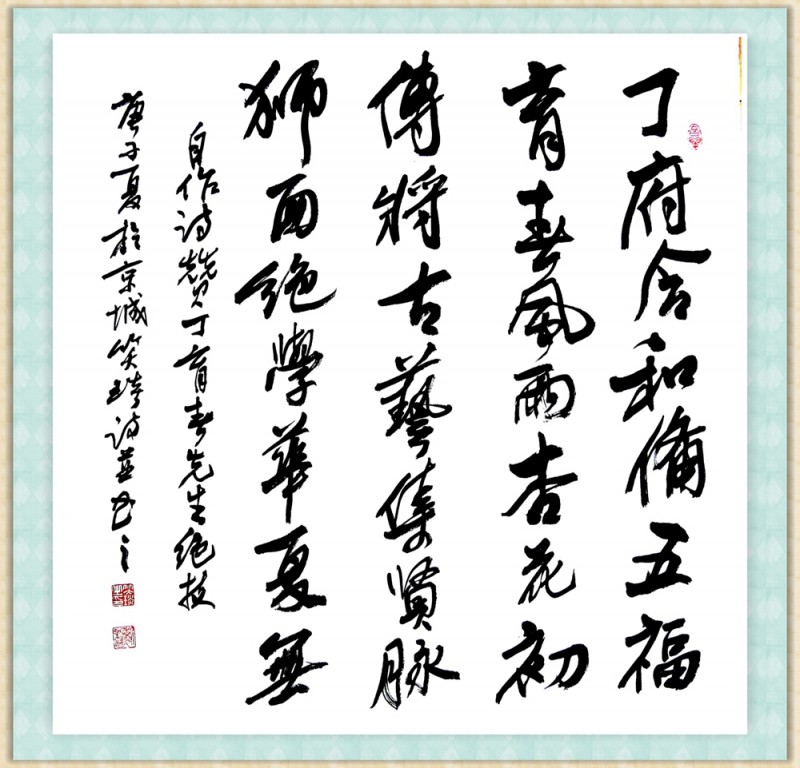 丁府合和備五福
育春風雨杏花初
傳將古藝集賢脉
狮面绝學華夏無
自作诗赞丁育春先生绝技
庚子夏於京城笑琦诗并书之